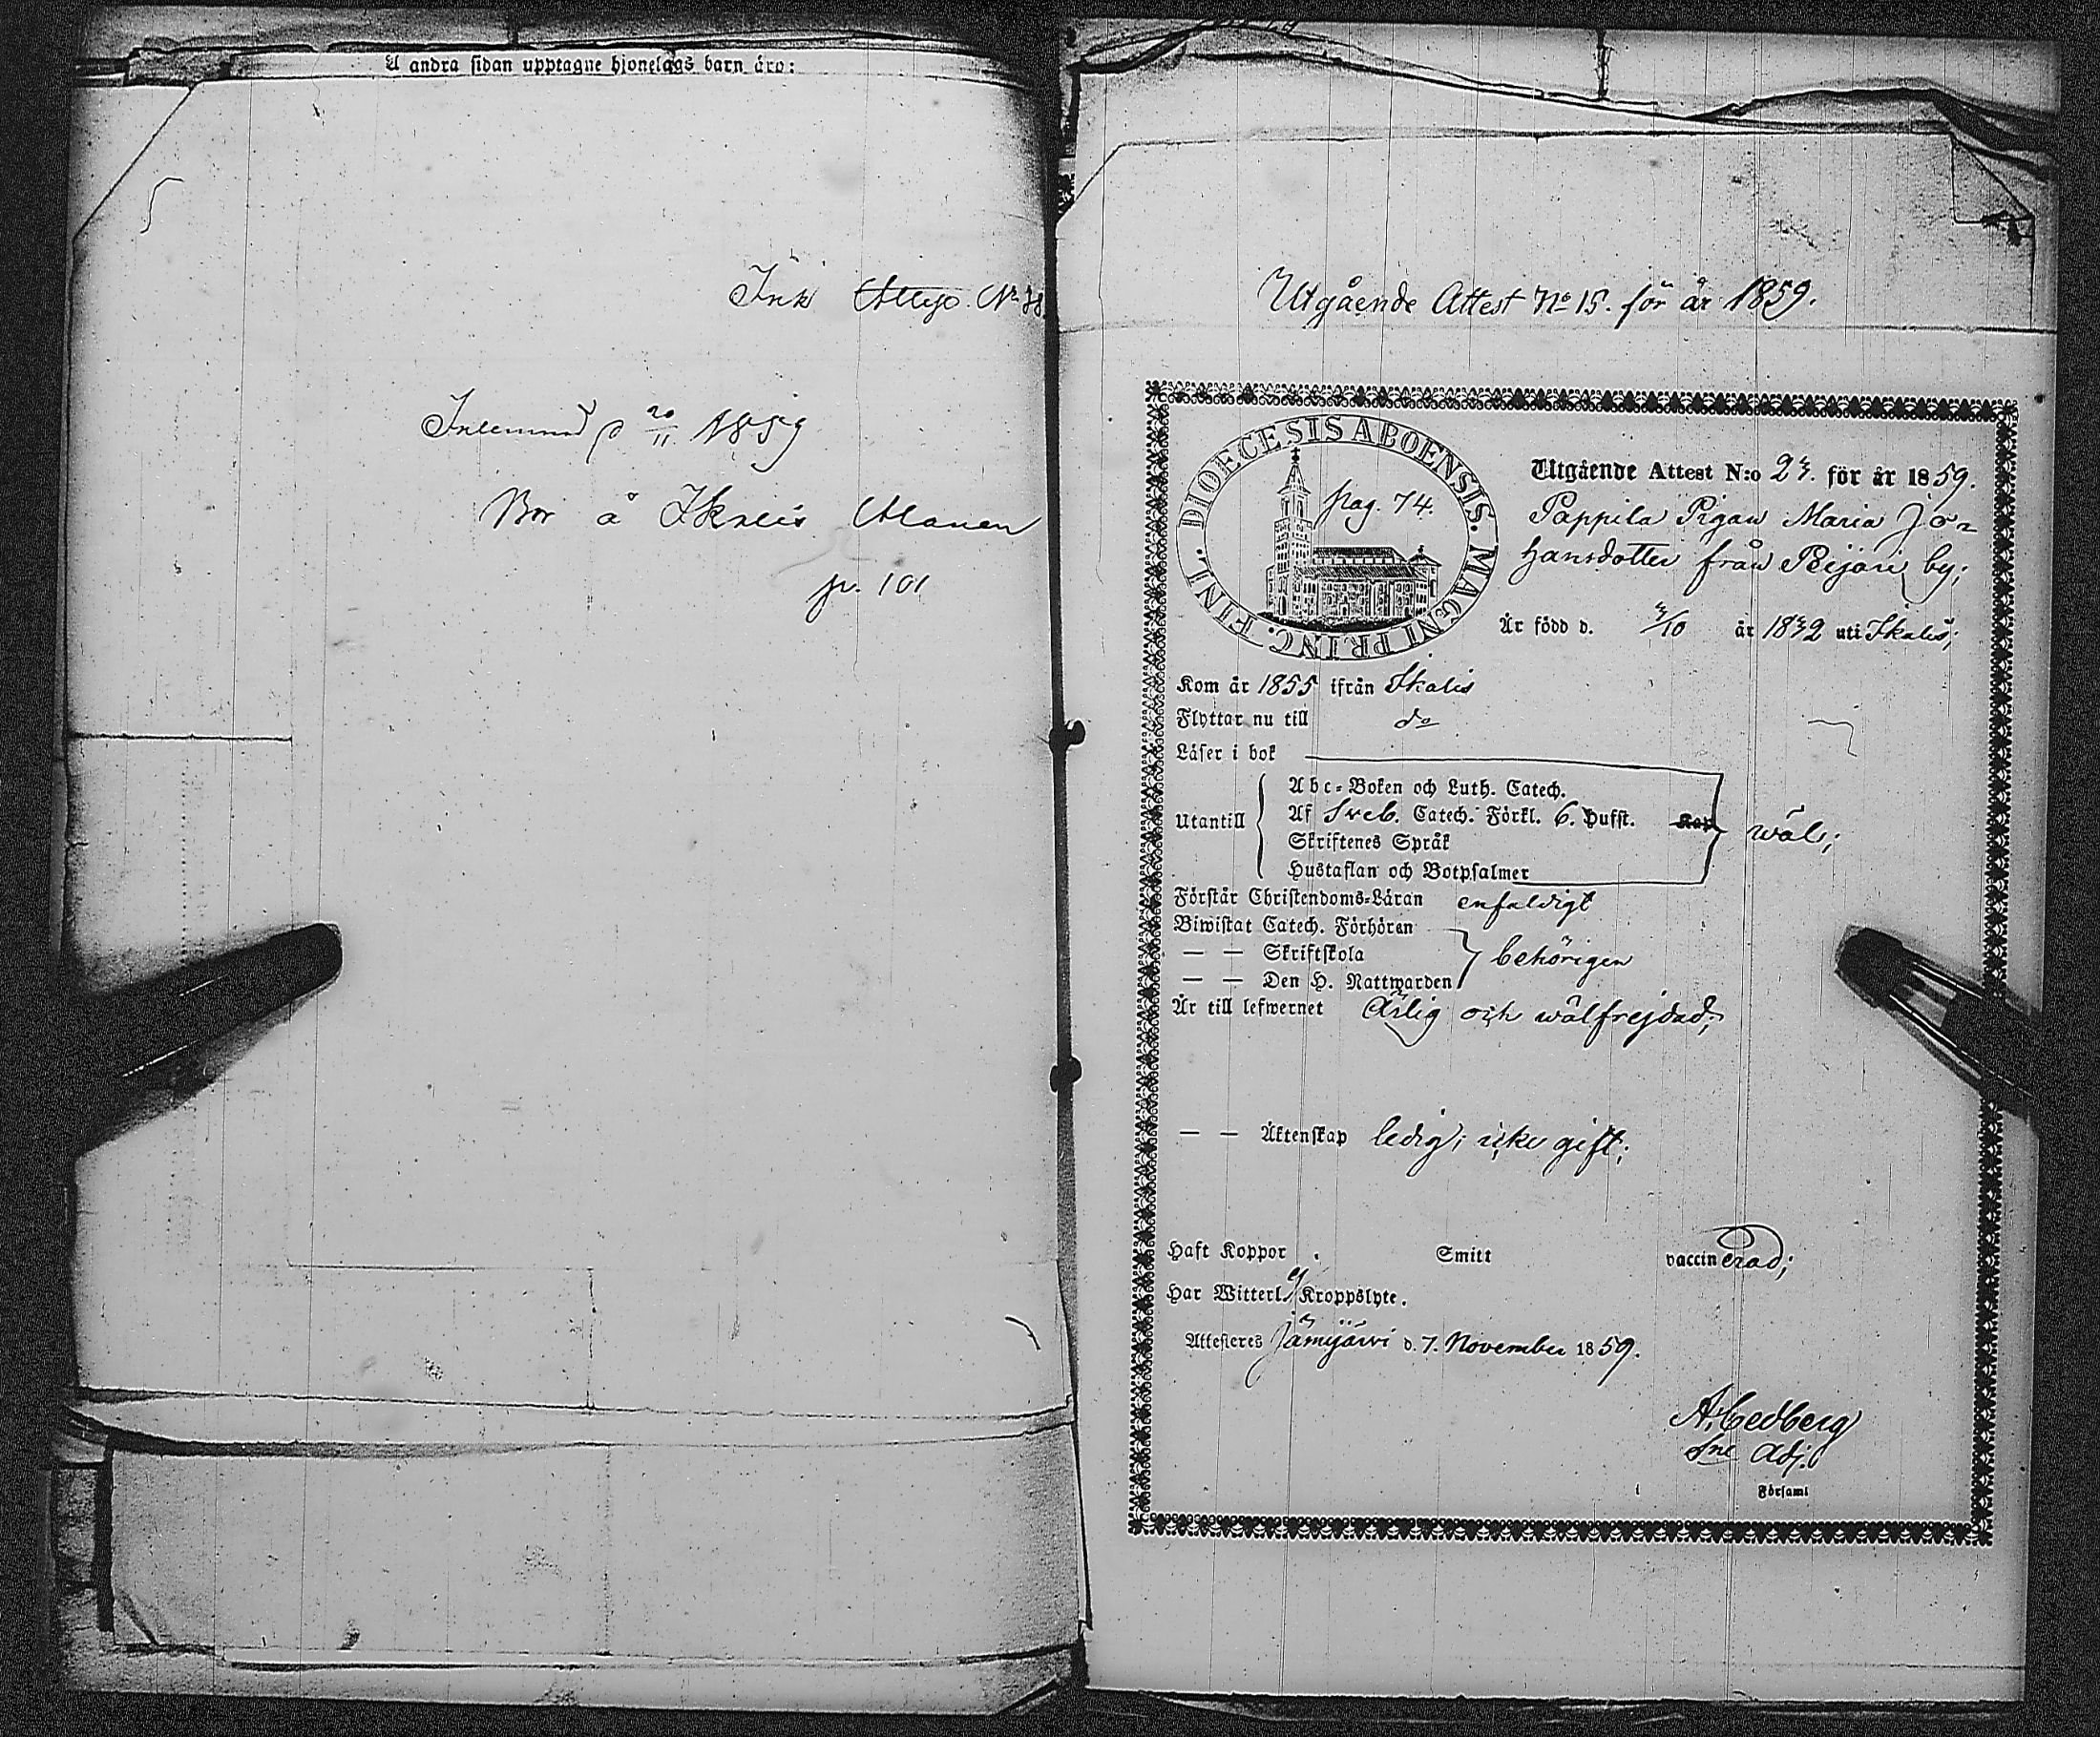 A andra sidan upptagne hjonelags barn äro:
Ink Attest. No 38
p 20/11 1859
Bor å Ikalis
p. 101
Utgående Attest No 15. för år 1859.
DIOECESIS ABOENSIS. MAGNI PRINC. FINL.
pag. 74.
Utgående Attest N:o 23. för år 1859.
Pappila Pigan Maria Jo-
hansdotter från Peijari by;
Är född d. 3/10 år 1832 uti Ikalis;
Kom år 1855 ifrån Ikalis
Flyttar nu till do
Läser i bok
Abc-Boken och Luth. Catech.
Utantill Af Sveb. Catech. Förkl. 6. Hufst. Kap wäl;
Skriftenes Språk
Hustaflan och Botpsalmer
Förstår Christendoms-Läran enfaldigt
Biwistat Catech. Förhören
— — Skriftskola behörigen
— — Den H. Nattwarden
Är till lefwernet Ärlig och wälfrejdad;
— — Äktenskap ledig; icke gift;
Haft Koppor . Smitt vaccinerad;
Har Witterl. ej Kroppslyte.
Attesteres Jämijärvi d. 7. November 1859.
A. Cedberg
Sne Adj.
i Församl